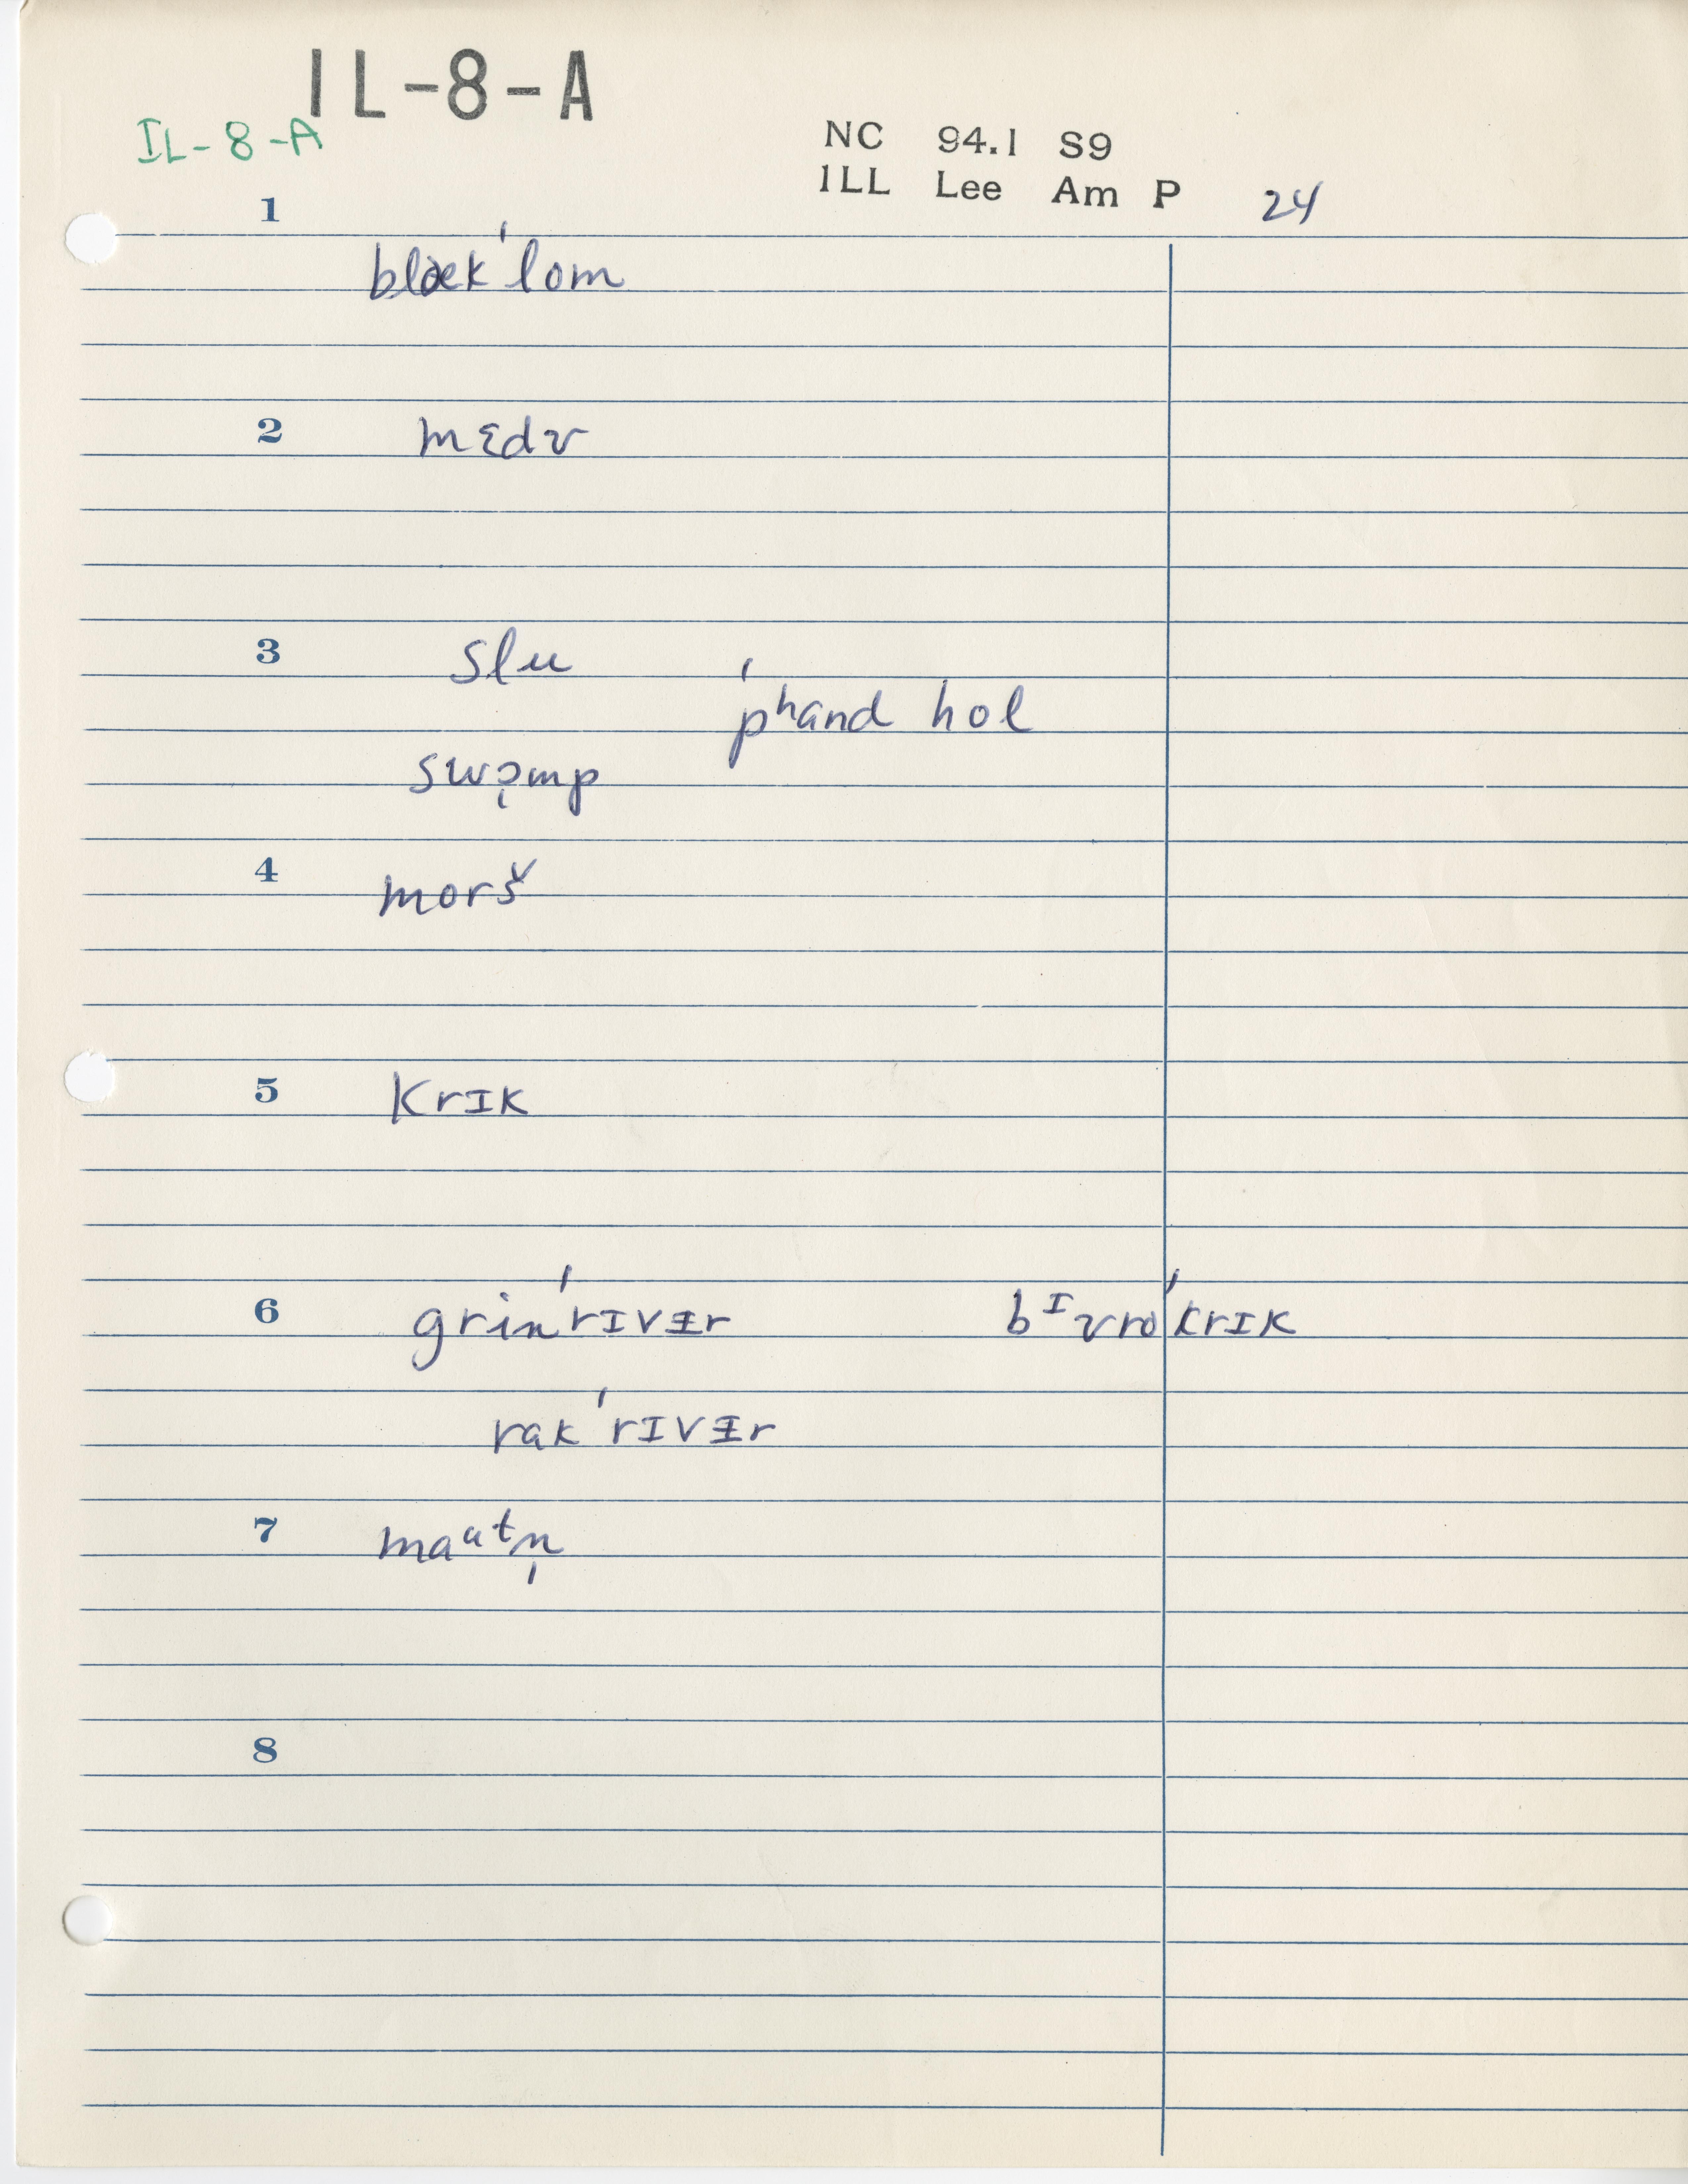 IL-8-A
IL-8-A
NC 94.1 S9
ILL Lee Am P 24
1
blæk ˈlom
2
mɛdʊ
3 slu
ˈpʰand hol
swɔ̜mp
4
morš
5 krɪk
6 grin ˈrɪvᵻr bᴵvro ˈkrɪk
rak ˈrɪvᵻr
7 maᵘᵗn̩
8